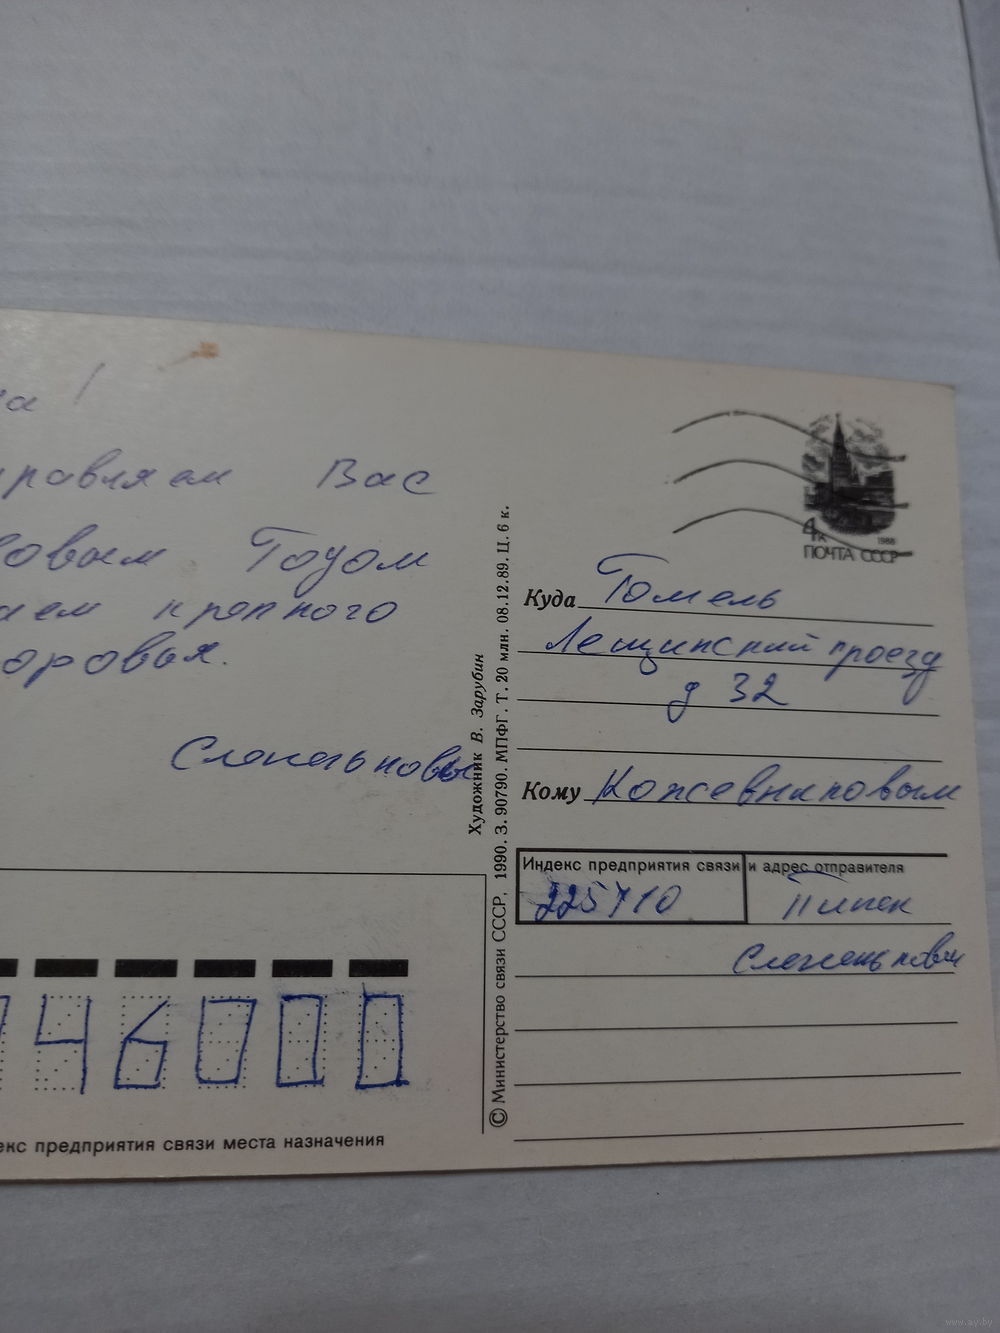 а!
равляем Вас
овым Годом
аем крепкого
оровья.
Слесеньковы
Художник В. Зарубин
© Министерство связи СССР, 1990. З. 90790. МПФГ. Т. 20 млн. 08.12.89. Ц. 6 к.
4к
1988
ПОЧТА СССР
Куда Гомель
Лещинский проезд
д 32
Кому Кожевниковым
Индекс предприятия связи и адрес отправителя
225710 Пинск
46000
екс предприятия связи места назначения
www.ay.by